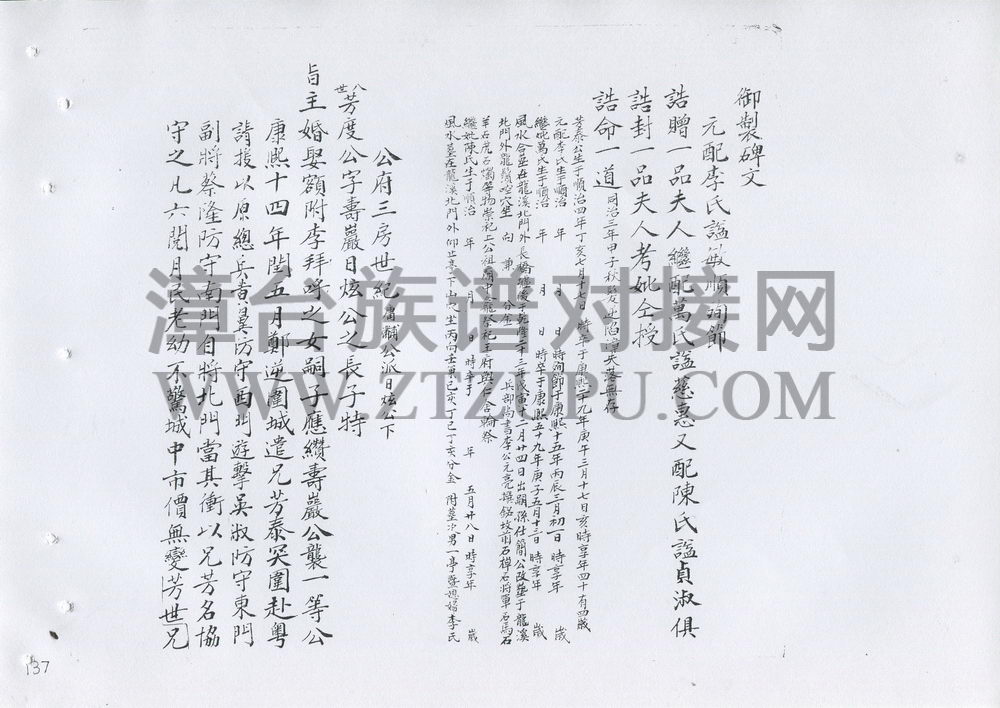 御製碑文
元配李氏謚敏順殉節
誥贈一品夫人繼配萬氏謚慈惠又配陳氏謚貞淑俱
誥封一品夫人考妣仝授
誥命一道 同治三年甲子秋髮逆陷漳失落無存
芳泰公生于順治四年丁亥七月十七日 卒于康熙二十九年庚午三月十七日亥時享年四十有四歲
元配李氏生于順治 年 月 日 時殉節于康熙十五年丙辰三月初一日 時享年 歲
繼妣萬氏生于順治 年 月 日 時卒于康熙五十九年庚子五月十三日 時享年 歲
風水合葬在龍溪北門外長橋 後于乾隆二十三年戊寅十二月廿四日出 孫仕簡公改葬于龍溪
北門外 穴坐 向 兼 分金 兵部尚書李公元亮撰銘 前石 石將軍石馬石
羊石虎石 等物 祀上公祖廟中 祭祀王府與仁合 祭
繼妣陳氏生于順治 年 月 日 時卒于 年 五月廿八日 時享年 歲
風水墓在龍溪北門外仰止亭下山 坐丙向壬兼巳亥丁巳丁亥分金 附墓次男一亭暨媳婦李氏
公府三房世紀 公派日炫公下
八世芳度公字壽巖日炫公之長子特
旨主婚娶額附李拜呼之女嗣子應纘壽巖公襲一等公
康熙十四年陞五月鄭逆圍城遣兄芳泰突圍赴粵
請援以原總兵黃翼防守西北遊擊吳淑防守東門
副將蔡隆防守南門自將北門當其衝以兄芳名協
守之凡六閱月民老幼不驚城中市價無變芳世兄
137
漳台族谱对接网
WWW.ZTZUPU.COM